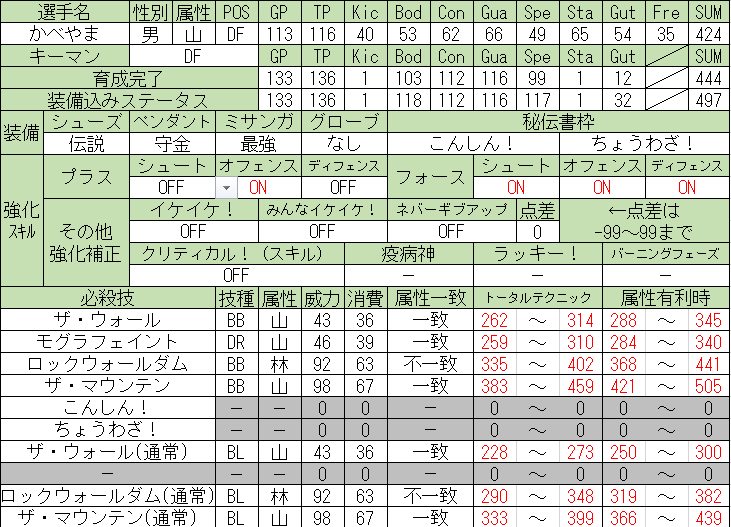 選手名 性別 属性 POS GP TP Kic Bod Con Gua Spe Sta Gut Fre SUM
かべやま 男 山 DF 113 116 40 53 62 66 49 65 54 35 424
キーマン DF GP TP Kic Bod Con Gua Spe Sta Gut SUM
育成完了 133 136 1 103 112 116 99 1 12 444
装備込みステータス 133 136 1 118 112 116 117 1 32 497
装備 シューズ ペンダント ミサンガ グローブ 秘伝書枠
伝説 守金 最強 なし こんしん! ちょうわざ!
強化スキル プラス シュート オフェンス ディフェンス フォース シュート オフェンス ディフェンス
OFF ON OFF ON ON ON
その他強化補正 イケイケ! みんなイケイケ! ネバーギブアップ 点差 ←点差は
OFF OFF OFF 0 -99~99まで
クリティカル!(スキル) 疫病神 ラッキー! バーニングフェーズ
OFF － － －
必殺技 技種 属性 威力 消費 属性一致 トータルテクニック 属性有利時
ザ・ウォール BB 山 43 36 一致 262 ～ 314 288 ～ 345
モグラフェイント DR 山 46 39 一致 259 ～ 310 284 ～ 340
ロックウォールダム BB 林 92 63 不一致 335 ～ 402 368 ～ 441
ザ・マウンテン BB 山 98 67 一致 383 ～ 459 421 ～ 505
こんしん! － － 0 0 － 0 ～ 0 0 ～ 0
ちょうわざ! － － 0 0 － 0 ～ 0 0 ～ 0
ザ・ウォール(通常) BL 山 43 36 一致 228 ～ 273 250 ～ 300
－ － － 0 0 － 0 ～ 0 0 ～ 0
ロックウォールダム(通常) BL 林 92 63 不一致 290 ～ 348 319 ～ 382
ザ・マウンテン(通常) BL 山 98 67 一致 333 ～ 399 366 ～ 439